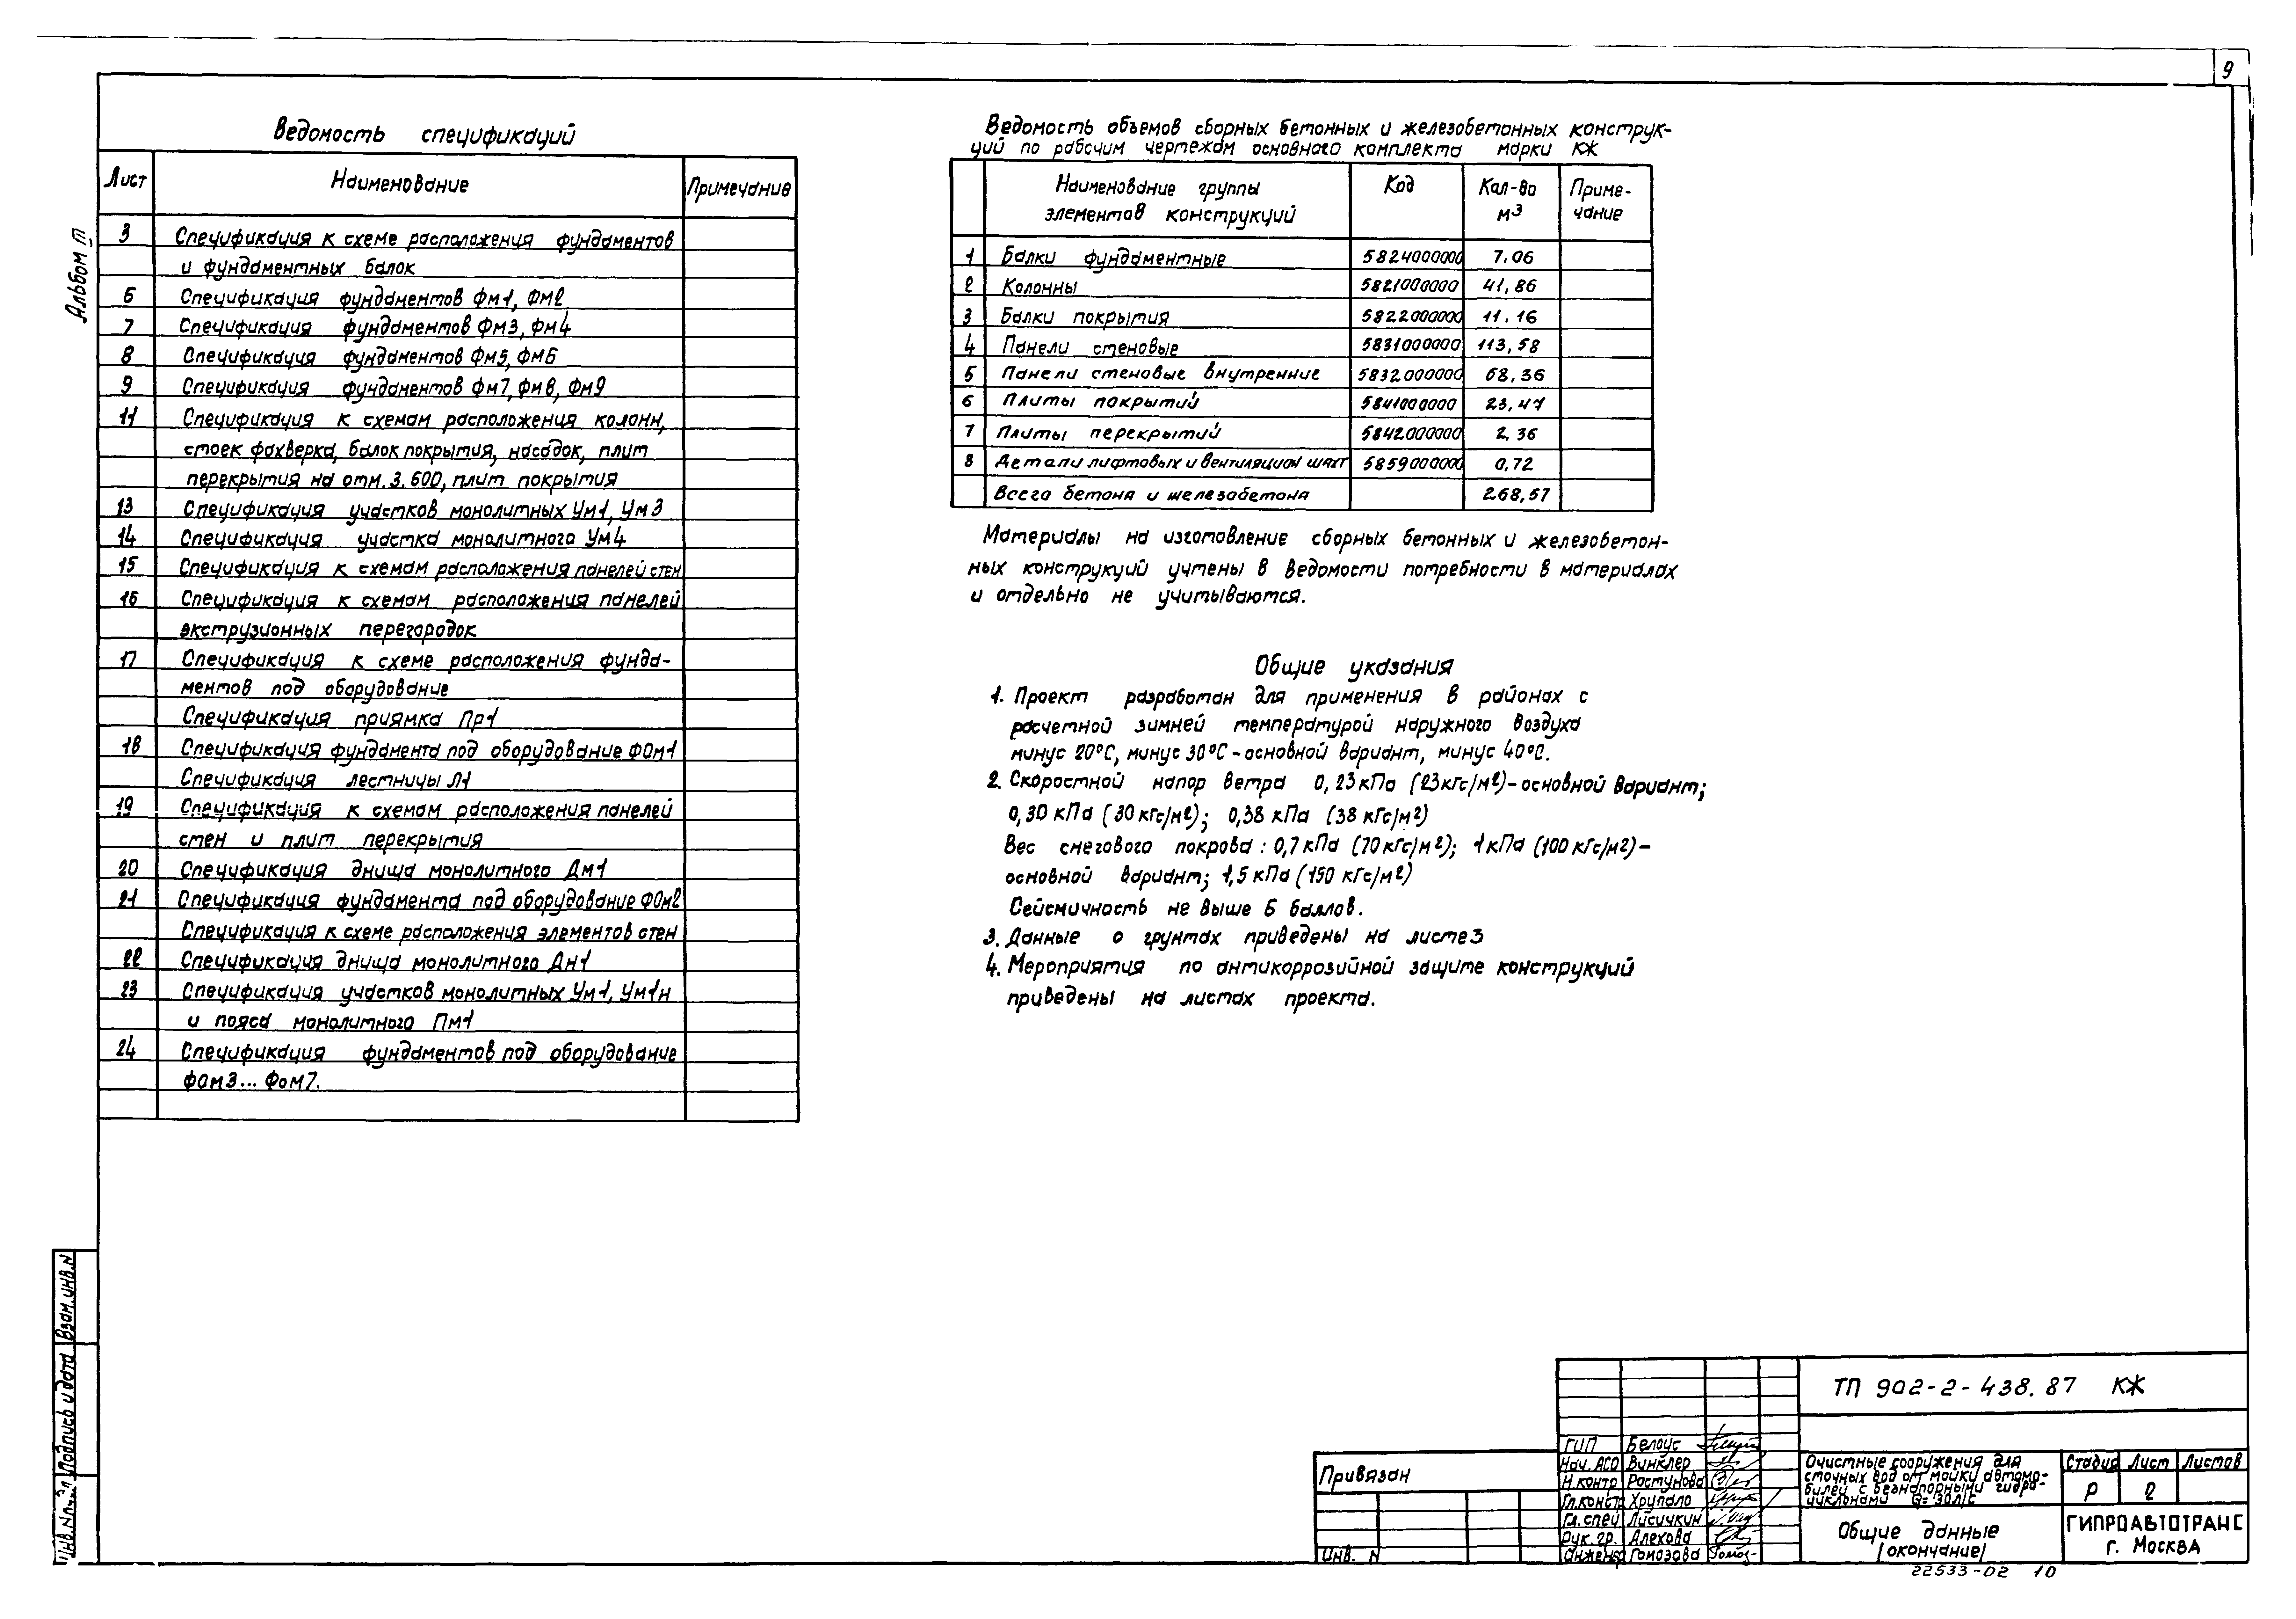 9
Альбом III
Ведомость спецификаций
Лист Наименование Примечание
3 Спецификация к схеме расположения фундаментов
и фундаментных балок
6 Спецификация фундаментов Фм1, Фм2
7 Спецификация фундаментов Фм3, Фм4
8 Спецификация фундаментов Фм5, Фм6
9 Спецификация фундаментов Фм7, Фм8, Фм9
11 Спецификация к схемам расположения колонн,
стоек фахверка, балок покрытия, насадок, плит
перекрытия на отм. 3.600, плит покрытия
13 Спецификация участков монолитных Ум1, Ум3
14 Спецификация участка монолитного Ум4
15 Спецификация к схемам расположения панелей стен
16 Спецификация к схемам расположения панелей
экструзионных перегородок
17 Спецификация к схеме расположения фунда-
ментов под оборудование
Спецификация приямка Пр1
18 Спецификация фундамента под оборудование ФОм1
Спецификация лестницы Л1
19 Спецификация к схемам расположения панелей
стен и плит перекрытия
20 Спецификация днища монолитного Дм1
21 Спецификация фундамента под оборудование ФОм2
Спецификация к схеме расположения элементов стен
22 Спецификация днища монолитного Дн1
23 Спецификация участков монолитных Ум1, Ум1н
и пояса монолитного Пм1
24 Спецификация фундаментов под оборудование
ФОм3... Фом7.
Ведомость объемов сборных бетонных и железобетонных конструк-
ций по рабочим чертежам основного комплекта марки КЖ
Наименование группы элементов конструкций Код Кол-во м3 Приме-чание
1 Балки фундаментные 5824000000 7.06
2 Колонны 5821000000 41,86
3 Балки покрытия 5822000000 11.16
4 Панели стеновые 5831000000 113,58
5 Панели стеновые внутренние 5832000000 68,36
6 Плиты покрытий 5841000000 23,47
7 Плиты перекрытий 5842000000 2,36
8 Детали лифтовых и вентиляцион шахт 5859000000 0,72
Всего бетона и железобетона 268,57
Материалы на изготовление сборных бетонных и железобетон-
ных конструкций учтены в ведомости потребности в материалах
и отдельно не учитываются.
Общие указания
1. Проект разработан для применения в районах с
расчетной зимней температурой наружного воздуха
минус 20°С, минус 30°С - основной вариант, минус 40°С.
2. Скоростной напор ветра 0,23 кПа (23 кгс/м2) - основной вариант;
0,30 кПа (30 кгс/м2); 0,38 кПа (38 кгс/м2)
Вес снегового покрова: 0,7 кПа (70 кгс/м2); 1 кПа (100 кгс/м2) -
основной вариант; 1,5 кПа (150 кгс/м2)
Сейсмичность не выше 6 баллов.
3. Данные о грунтах приведены на листе 3
4. Мероприятия по антикоррозийной защите конструкций
приведены на листах проекта.
Взам. инв. N
Подпись и дата
Инв. N подл
Привязан
Инв. N
ГИП Белоус
Нач. АСО Винклер
Н.контр Растунова
Гл.констр Хрупало
Гл. спец Лисичкин
Рук. гр. Алехова
Инженер Гомозова
ТП 902-2-438.87 КЖ
Очистные сооружения для
сточных вод от мойки автомо-
билей с безнапорными гидро-
циклонами Q=30л/с
Стадия Лист Листов
Р 2
Общие данные
/окончание/
ГИПРОАВТОТРАНС
г. Москва
22533-02 10